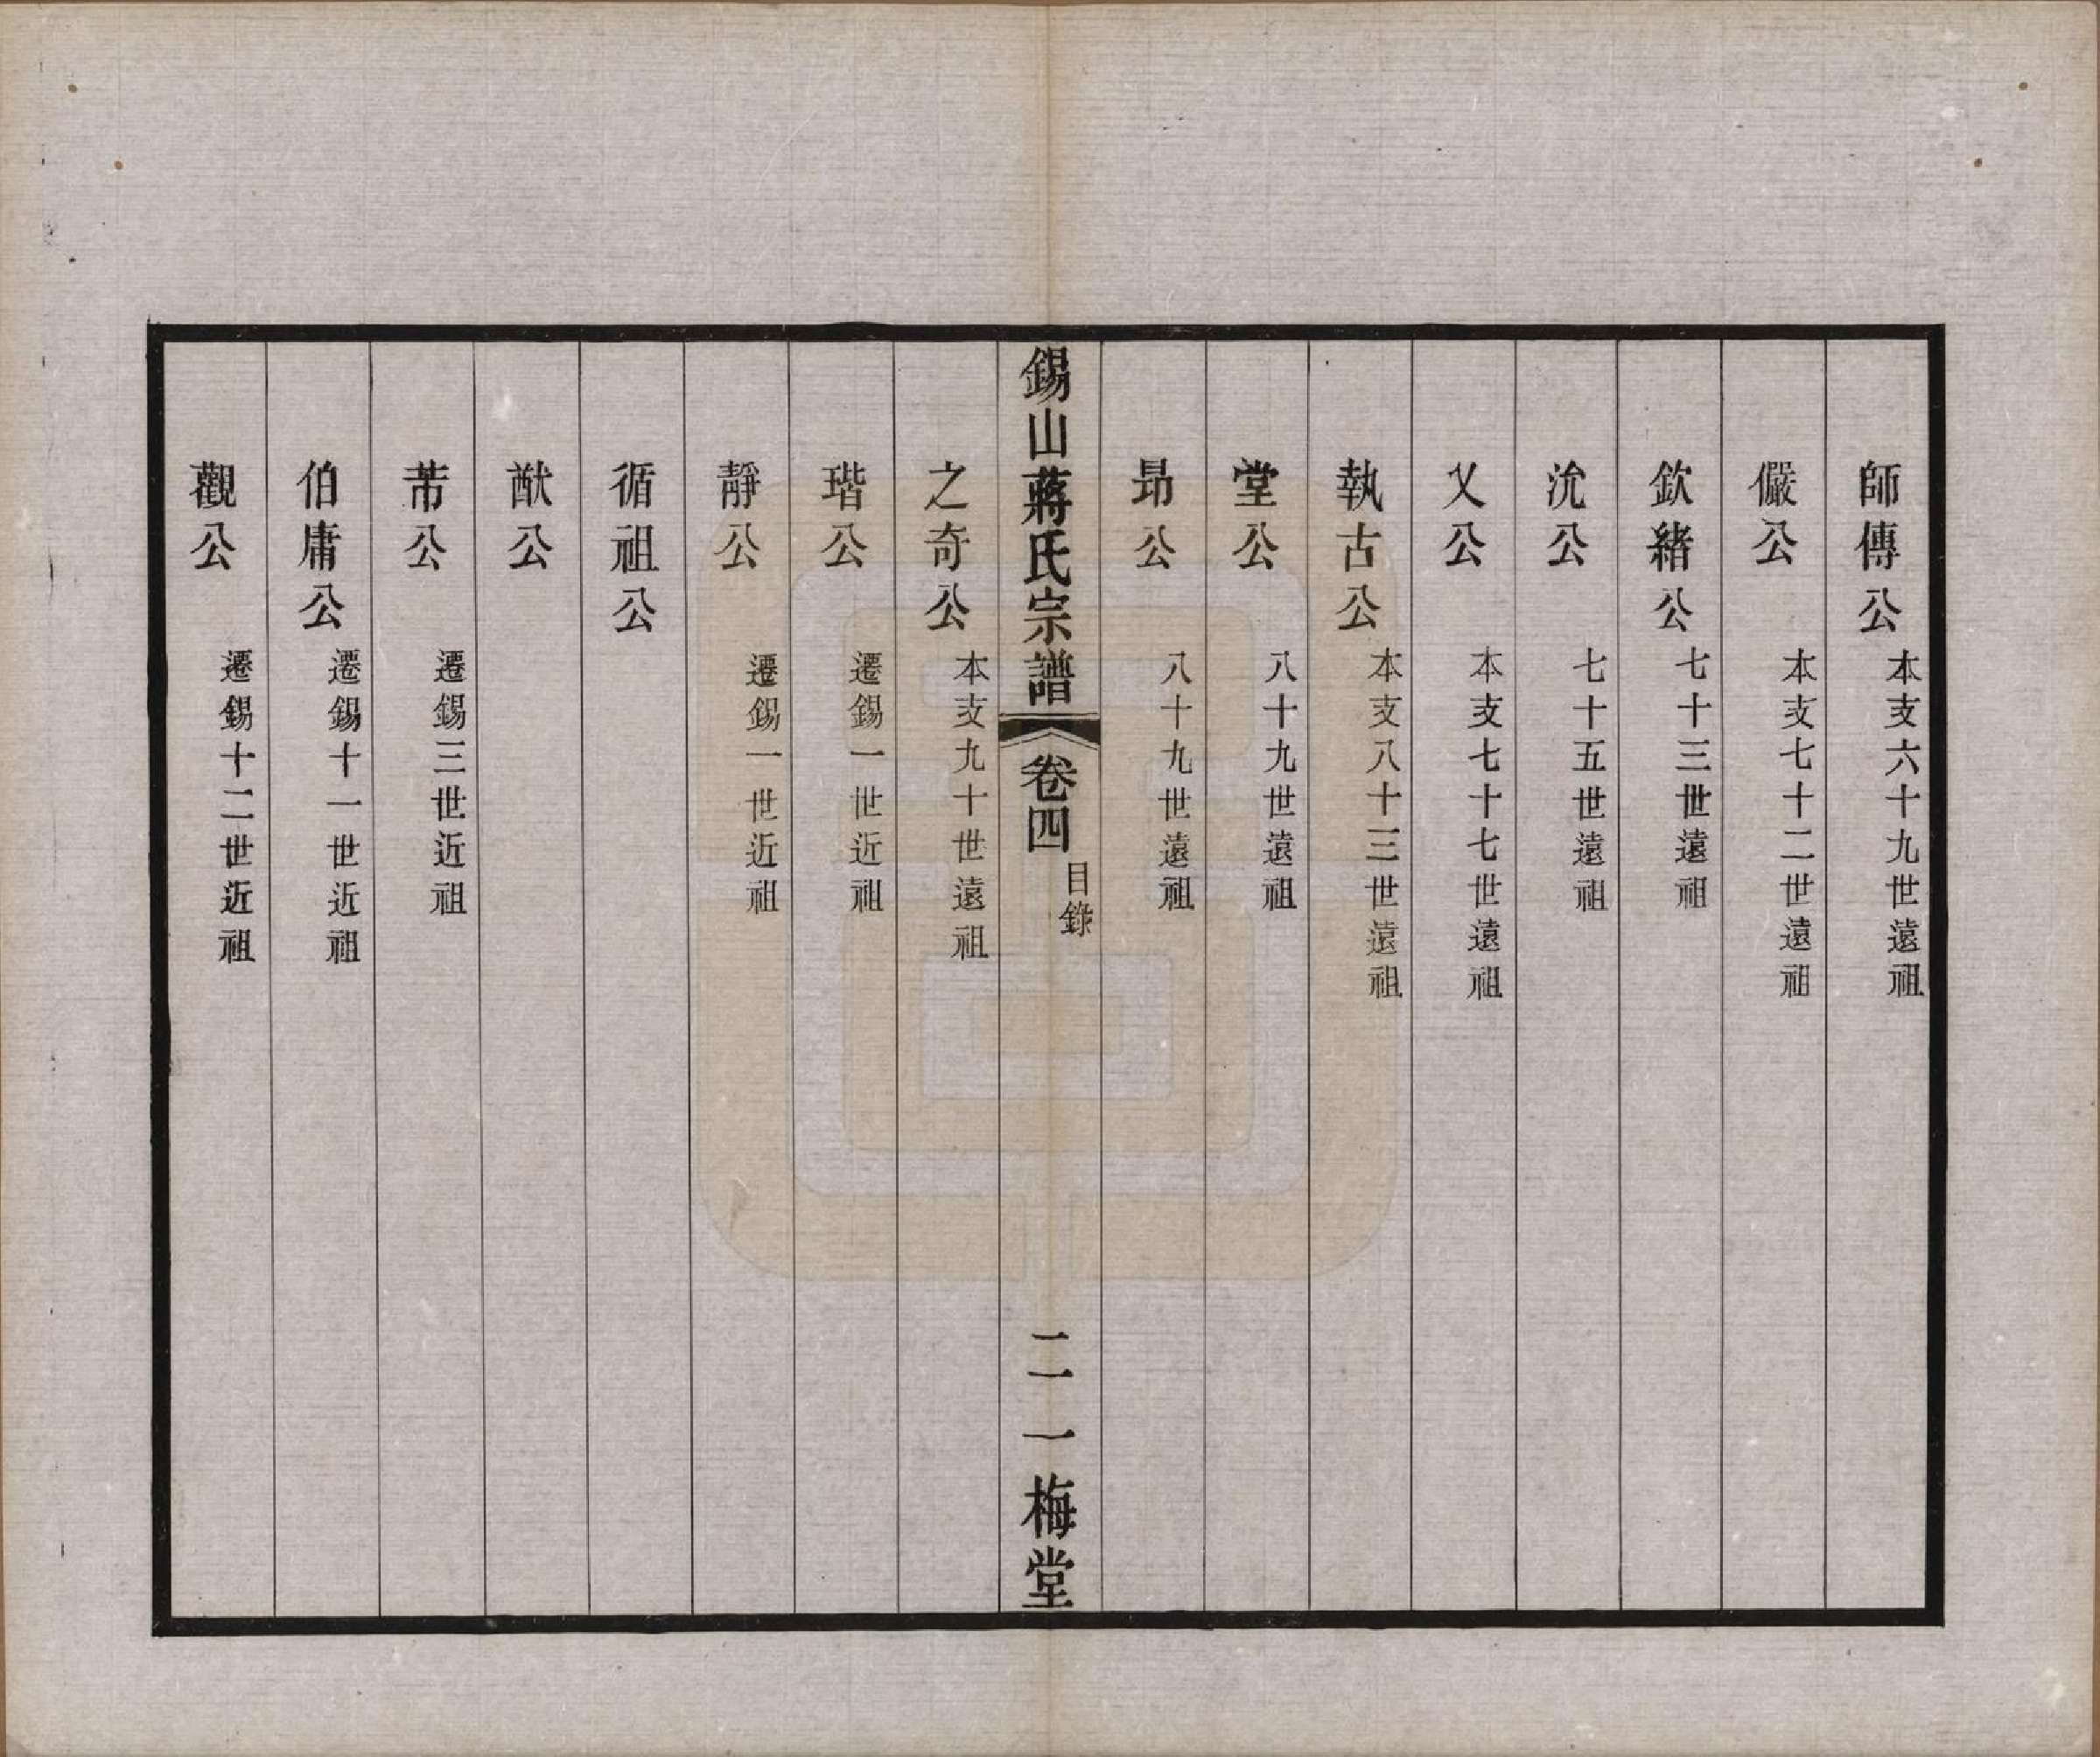 師傳公 本支六十九世遠祖
儼公 本支七十二世遠祖
欽緒公 七十三世遠祖
沇公 七十五世遠祖
乂公 本支七十七世遠祖
執古公 本支八十三世遠祖
堂公 八十九世遠祖
昻公 八十九世遠祖
錫山蔣氏宗譜 卷四 目錄 二 一梅堂
之奇公 本支九十世遠祖
瑎公 遷錫一世近祖
靜公 遷錫一世近祖
循祖公
猷公
芾公 遷錫三世近祖
伯庸公 遷錫十一世近祖
觀公 遷錫十二世近祖